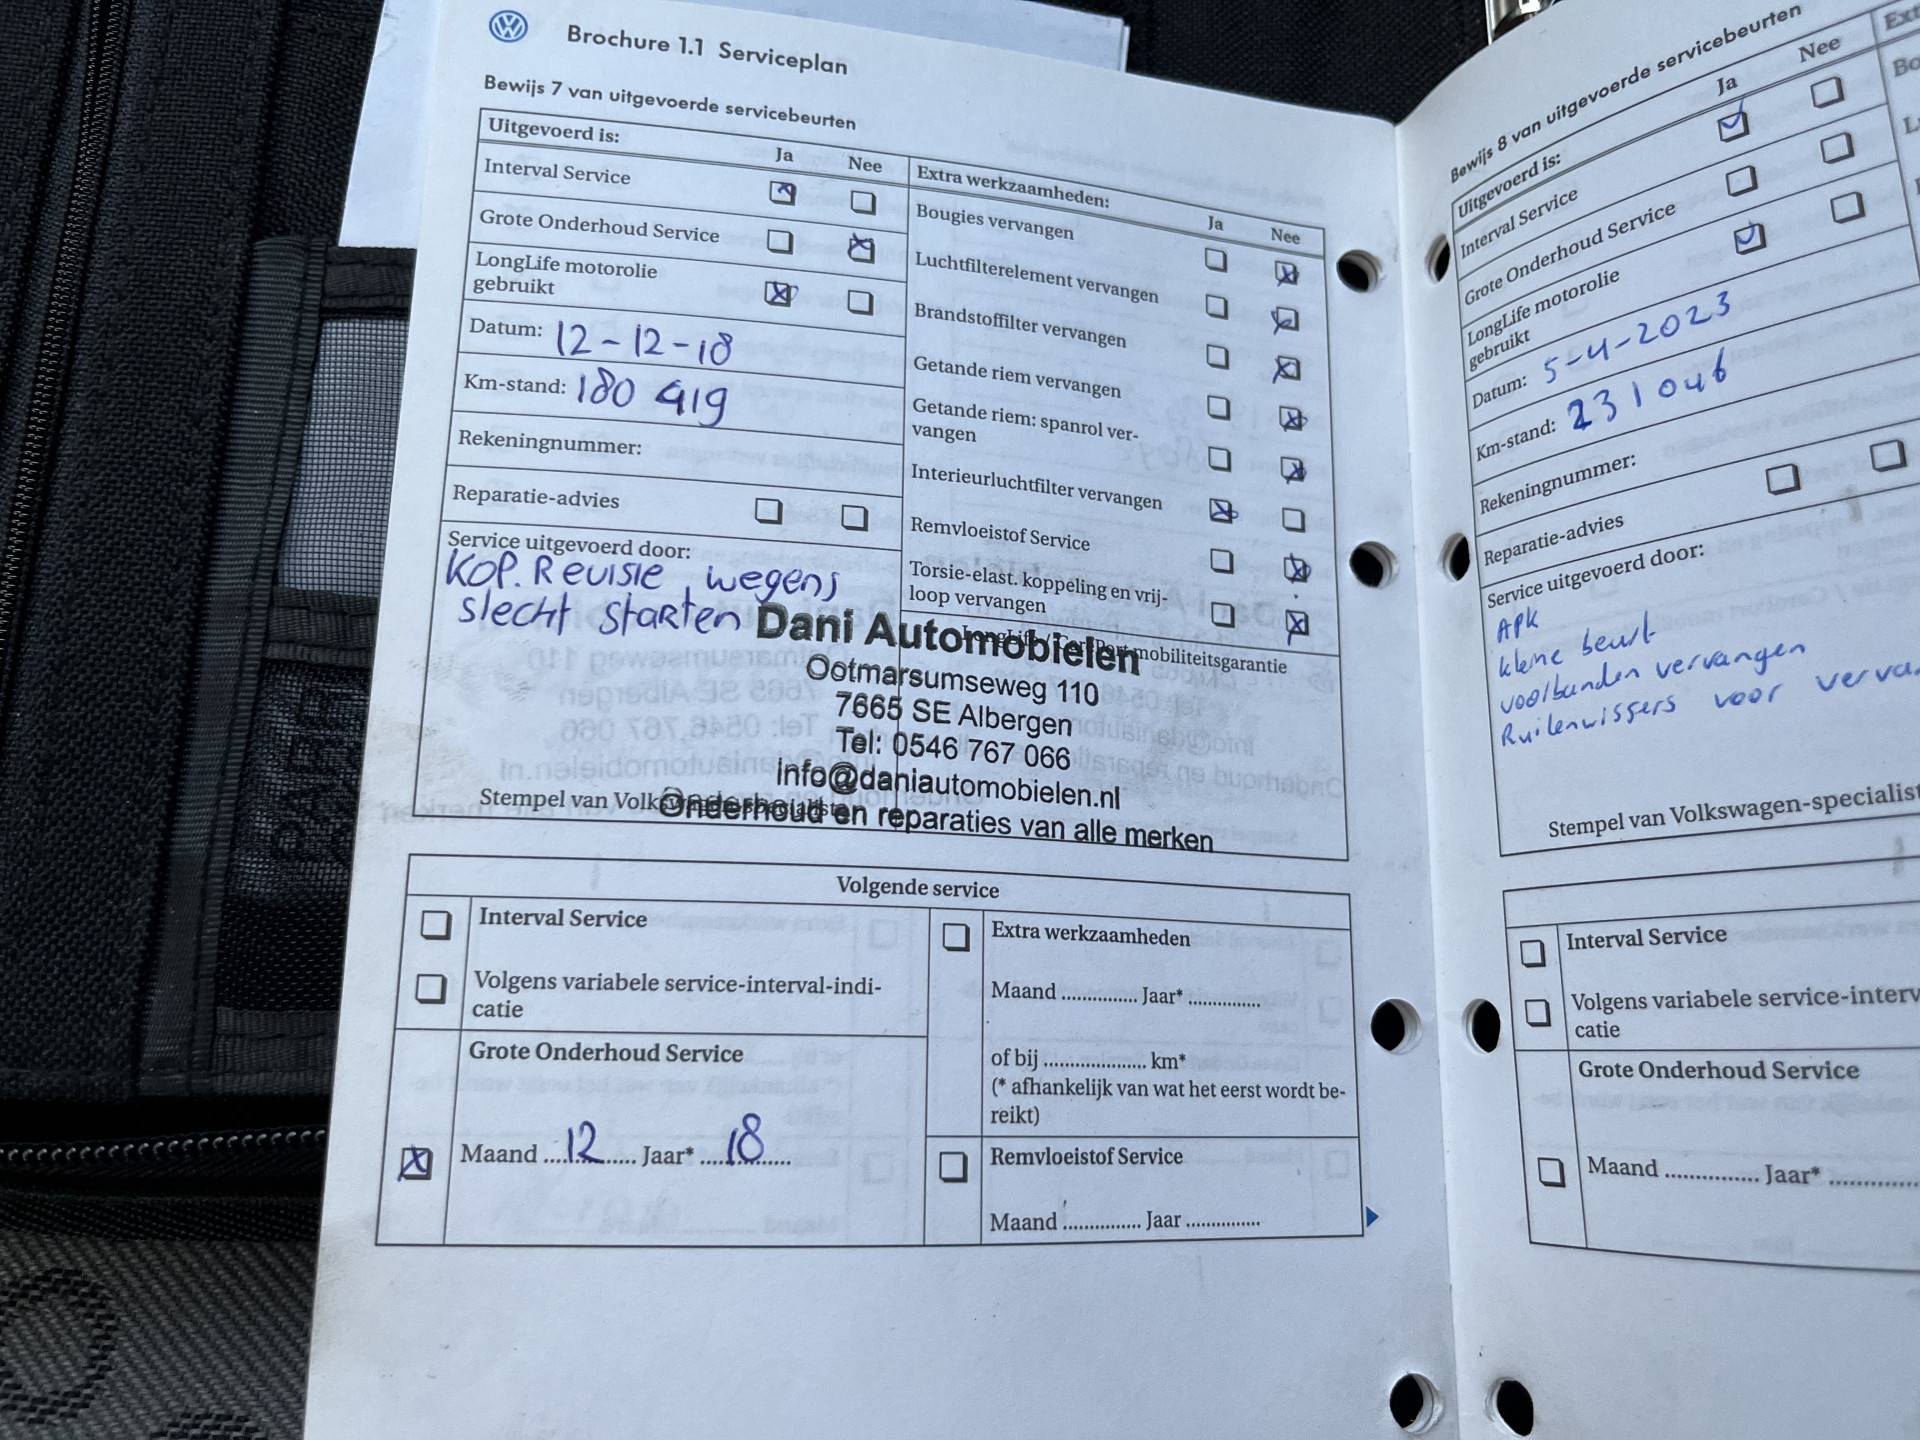 Brochure 1.1 Serviceplan
Bewijs 7 van uitgevoerde servicebeurten
Uitgevoerd is:
Ja Nee
Interval Service
Grote Onderhoud Service
LongLife motorolie
gebruikt
Datum: 12-12-18
Km-stand: 180 419
Rekeningnummer:
Reparatie-advies
Service uitgevoerd door:
KOP. Revisie wegens
slecht starten
Extra werkzaamheden:
Ja Nee
Bougies vervangen
Luchtfilterelement vervangen
Brandstoffilter vervangen
Getande riem vervangen
Getande riem: spanrol ver-
vangen
Interieurluchtfilter vervangen
Remvloeistof Service
Torsie-elast. koppeling en vrij-
loop vervangen
mobiliteitsgarantie
Dani Automobielen
Ootmarsumseweg 110
7665 SE Albergen
Tel: 0546 767 066
info@daniautomobielen.nl
Onderhoud en reparaties van alle merken
Stempel van Volkswagen-specialist
Volgende service
Interval Service
Volgens variabele service-interval-indi-
catie
Grote Onderhoud Service
Maand ....12.... Jaar* ....18....
Extra werkzaamheden
Maand .............. Jaar* ..............
of bij .................... km*
(* afhankelijk van wat het eerst wordt be-
reikt)
Remvloeistof Service
Maand .............. Jaar ..............
Bewijs 8 van uitgevoerde servicebeurten
Uitgevoerd is:
Ja Nee
Interval Service
Grote Onderhoud Service
LongLife motorolie
gebruikt
Datum: 5-4-2023
Km-stand: 231046
Rekeningnummer:
Reparatie-advies
Service uitgevoerd door:
APK
kleine beurt
voorbanden vervangen
Ruitenwissers voor verva
Stempel van Volkswagen-specialist
Interval Service
Volgens variabele service-interv
catie
Grote Onderhoud Service
Maand ................ Jaar* ................